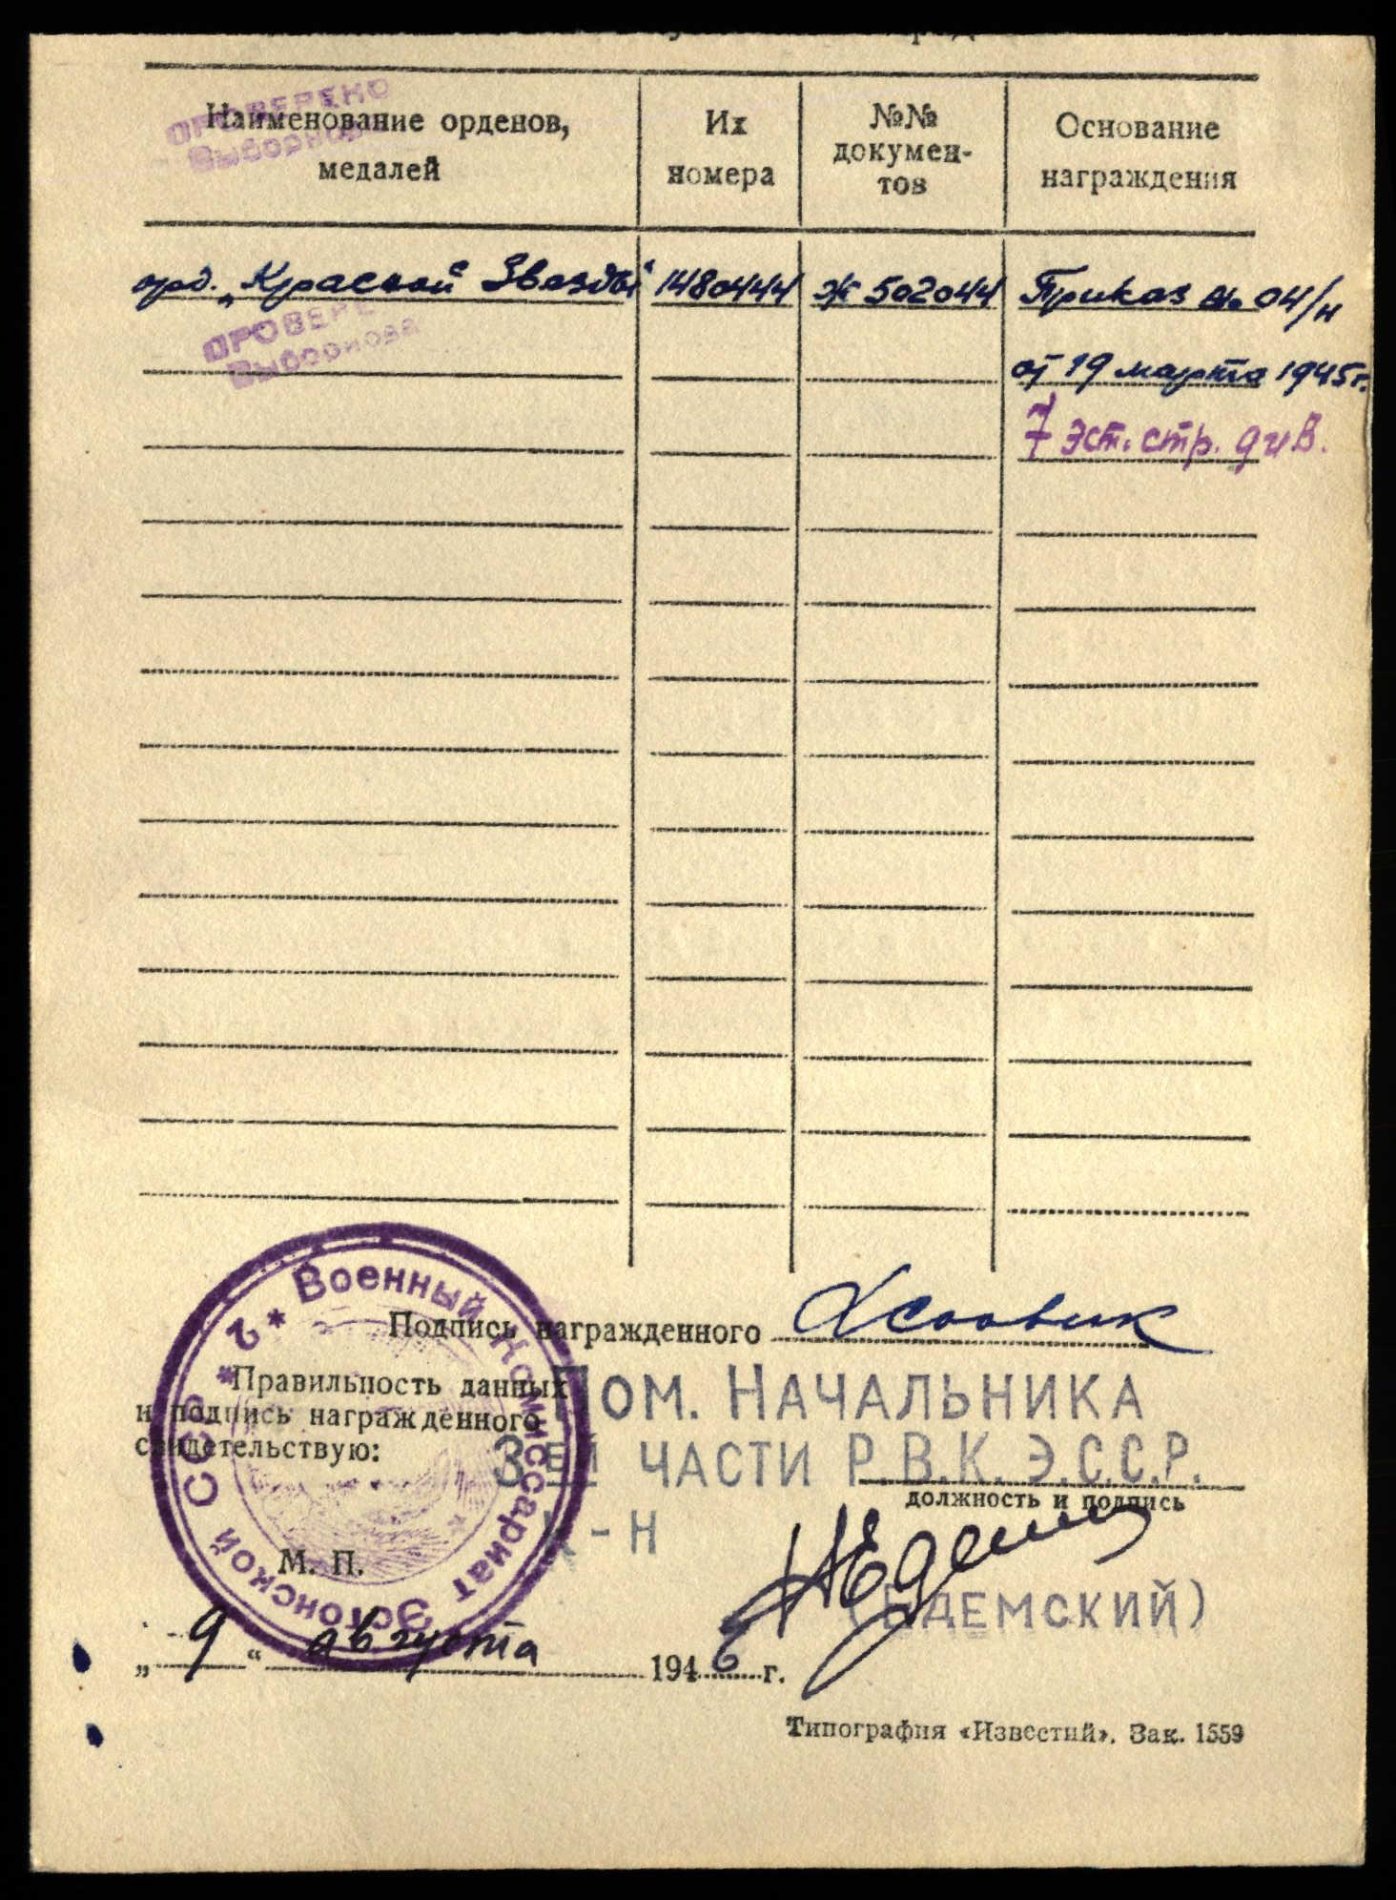 Наименование орденов,
медалей
Их
номера
№№
докумен-
тов
Основание
награждения
ПРОВЕРЕНО
орд. „Красной Звезды“ 1480444 Ж 502044 Приказ № 04/н
Выборнова
от 19 марта 1945 г.
7 эст. стр. див.
Подпись награжденного
Правильность данных
и подпись награжденного
свидетельствую:
Пом. Начальника
3ей части Р.В.К. Э.С.С.Р.
должность и подпись
К-н
(Едемский)
М. П.
* Военный Комиссариат Эстонской ССР * 2
„9“ августа 1946 г.
Типография «Известий». Зак. 1559